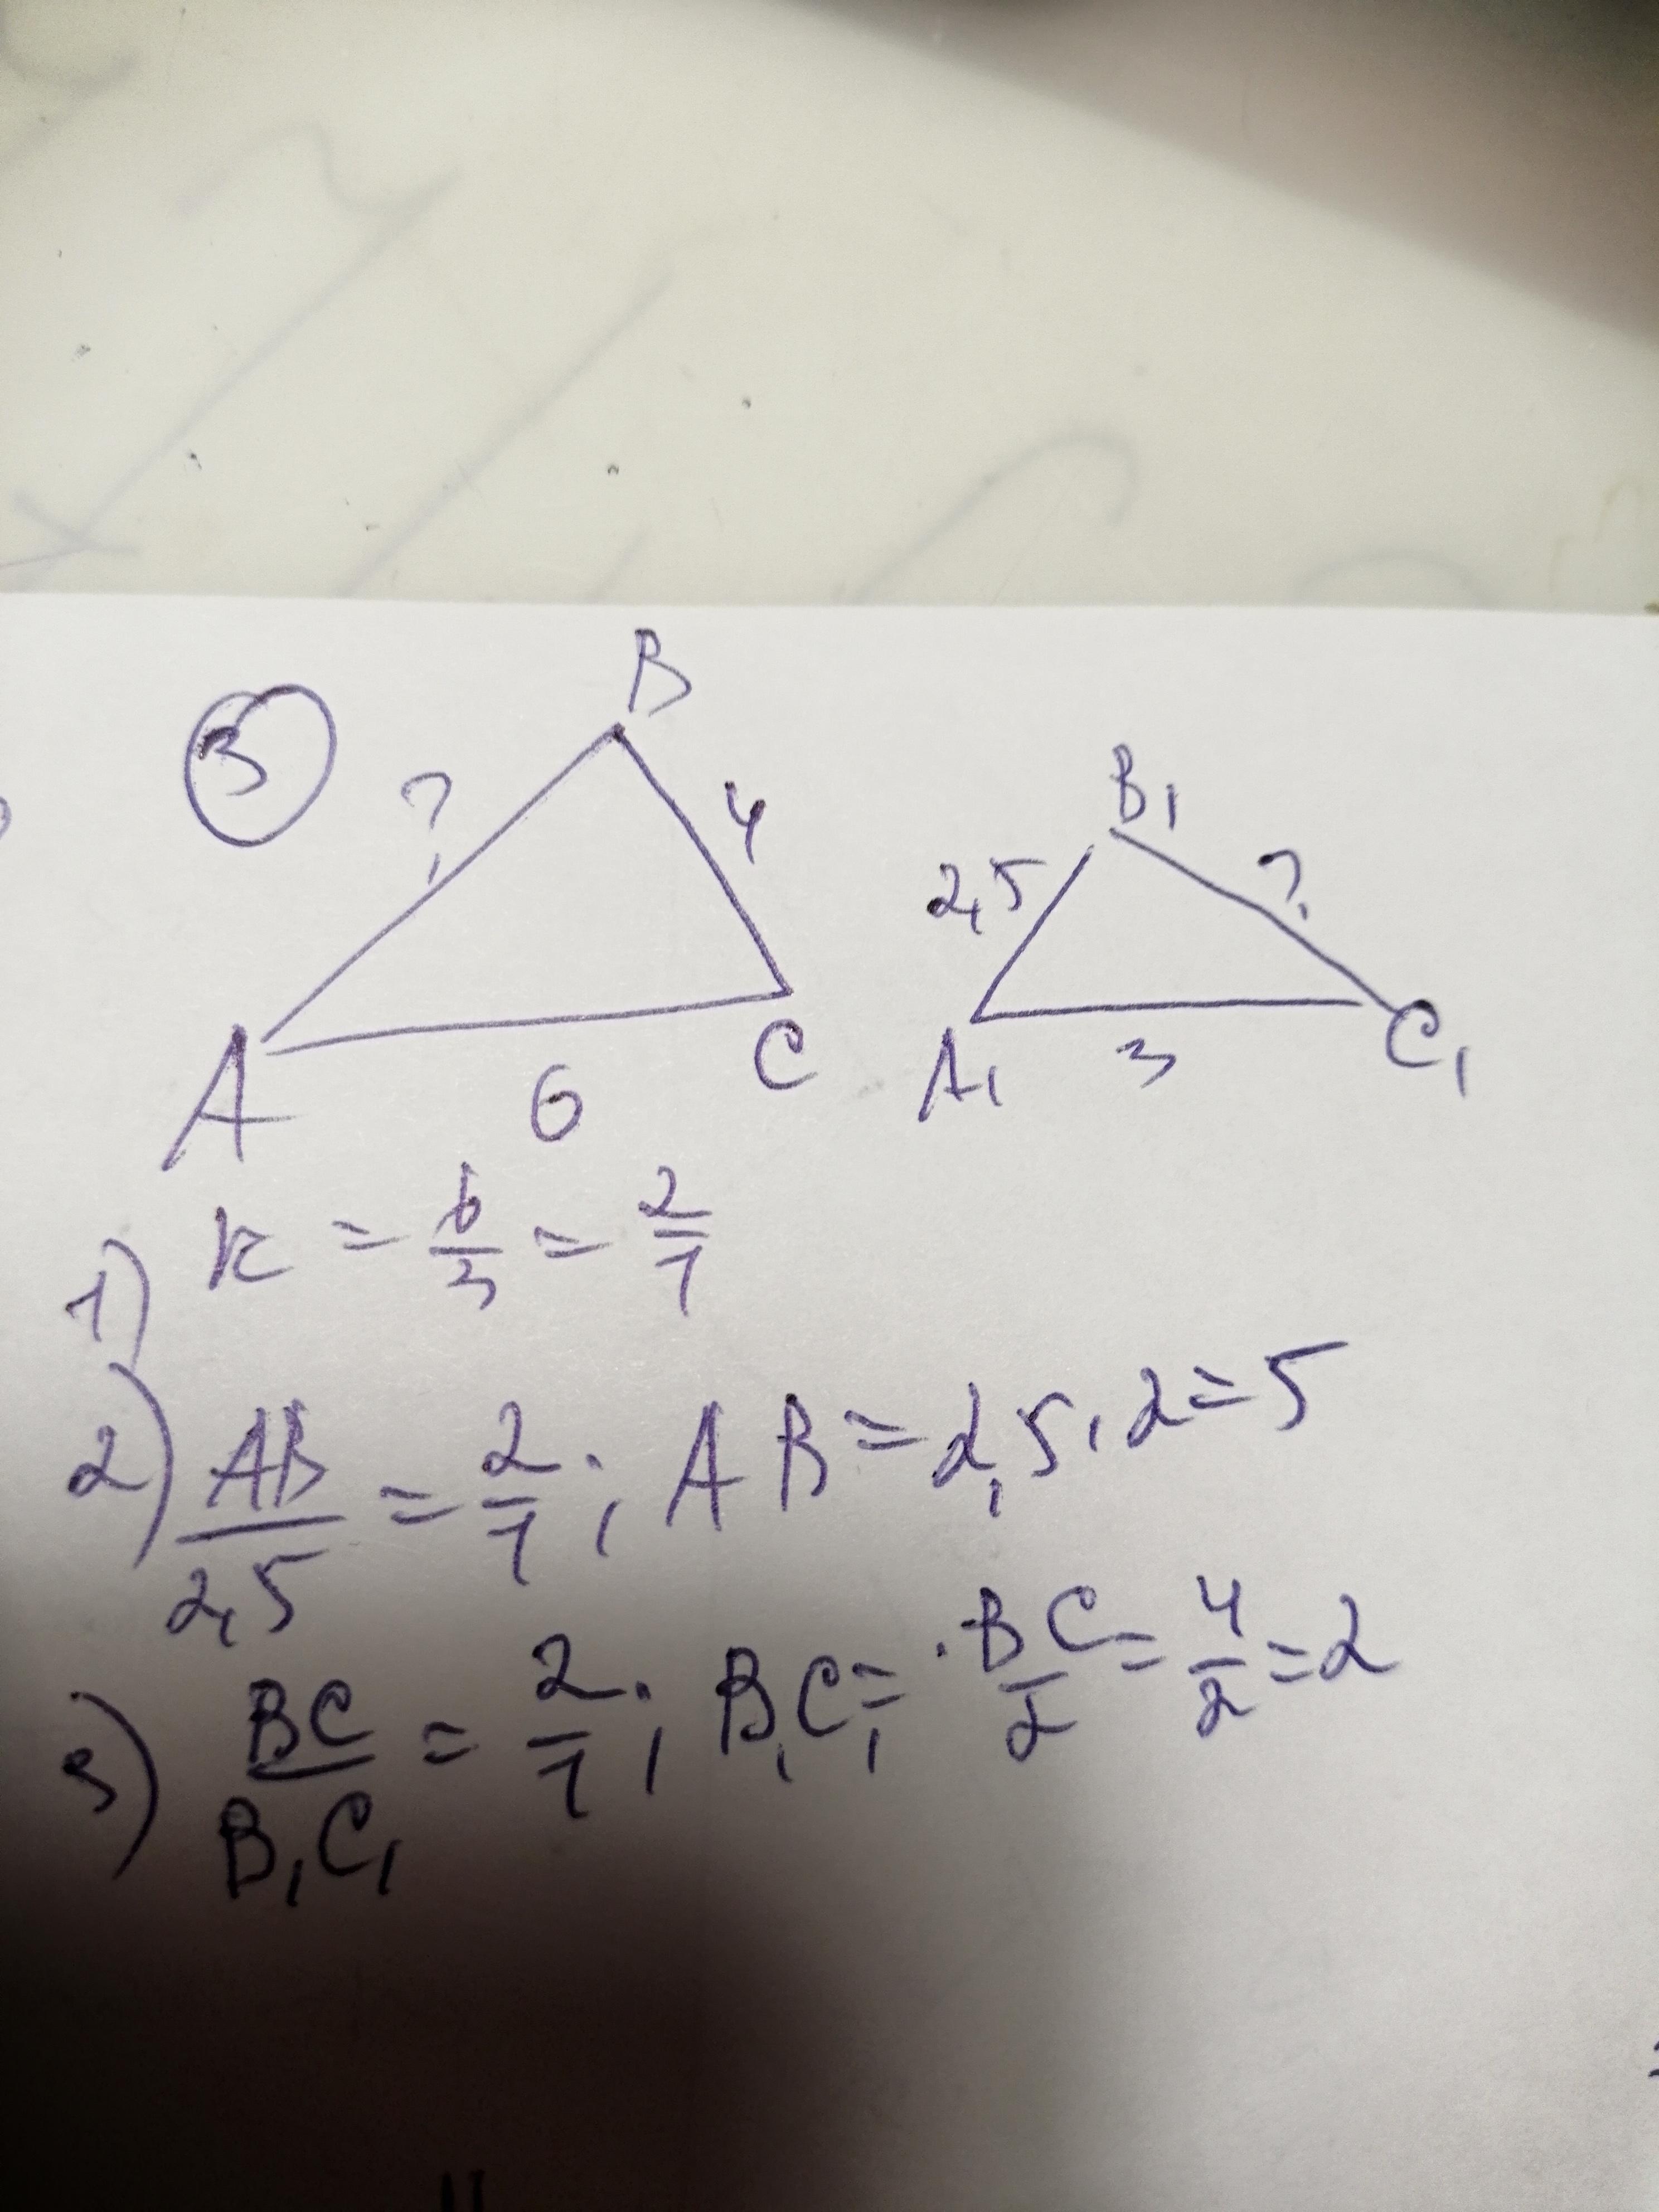 3
B
? 4
B₁
2,5 ?
A 6 C
A₁ 3 C₁
1) K = 6/3 = 2/1
2) AB/2,5 = 2/1; AB = 2,5 · 2 = 5
3) BC/B₁C₁ = 2/1; B₁C₁ = BC/2 = 4/2 = 2